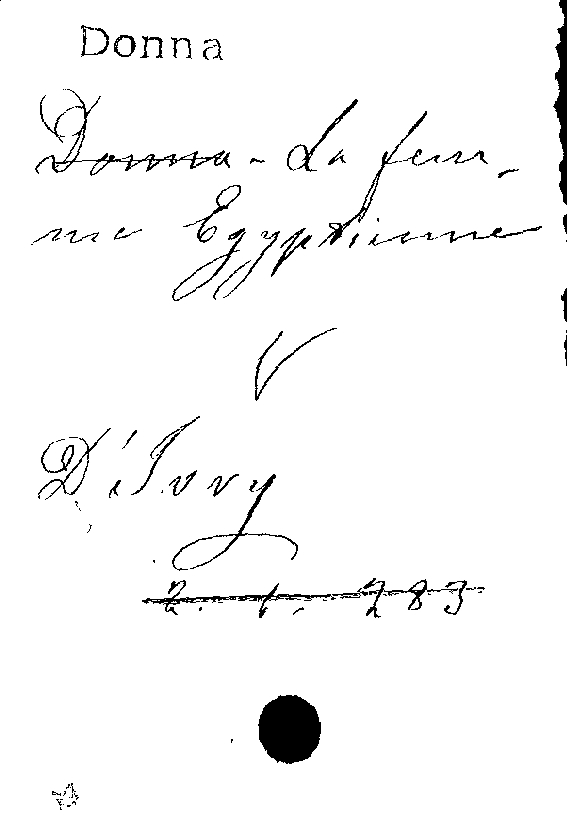 Donna
Donna - La fem-
me Egyptienne
V
D'Ivry
2. 1. 283